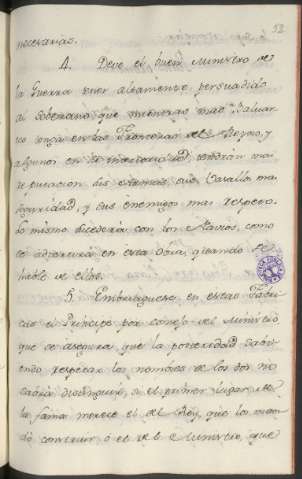 52
necesarias.
4. Deve el buen Ministro de
la Guerra vivir altamente persuadido
al Soberano que mientras mas Baluar
tes tenga en las Fronteras del Reyno, y
algunos en el tendrán ma
reputacion sus armas, sus Vasallos ma
seguridad, y sus enemigos mas respeto.
lo mismo sucederá con los Navios, como
se adquirirá en esta Obra, quando se
hable de ellos.
5. en estas Fabri
cas el Principe por consejo del Ministro
que se asegura que la posteridad
respetar los nombres de los dos no
sabrá distinguir, si el primer lugar de
la fama merece el del Rey, que los man
dó construir ó el del Ministro, que